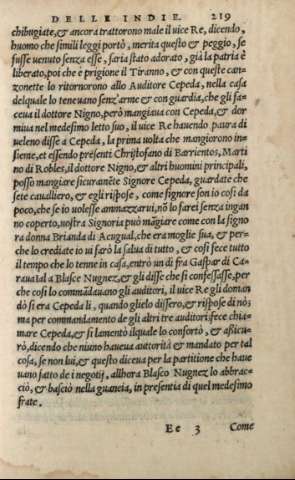 DELLE INDIE. 219
chibugiate, & ancora trattorono male il uice Re, dicendo,
huomo che simili leggi portò, merita questo & peggio, se
fusse uenuto senza esse, saria stato adorato, già la patria è
liberata, poi che è prigione il Tiranno, & con queste can-
zonette lo ritornorono allo Auditore Cepeda, nella casa
delquale lo teneuano senz'arme & con guardia, che gli fa-
ceua il dottore Nigno, però mangiaua con Cepeda, & dor
miua nel medesimo letto suo, il uice Re hauendo paura di
ueleno disse a Cepeda, la prima uolta che mangiorono in-
sieme, et essendo presenti Christofano di Barrientos, Marti
no di Robles, il dottore Nigno, & altri huomini principali,
posso mangiare sicuramẽte Signore Cepeda, guardate che
sete caualliero, & egli rispose, come signore son io cosi da
poco, che se io uolesse ammazzarui, nõ lo farei senza ingan
no coperto, uostra Signoria può mãgiare come con la signo
ra donna Brianda di Acugual, che era moglie sua, & per-
che lo crediate io ui farò la salua di tutto, & cosi fece tutto
il tempo che lo tenne in casa, entrò un dì fra Gaspar di Ca-
rauaial a Blasco Nugnez, & gli disse che si confessasse, per
che cosi lo commãdauano gli auditori, il uice Re gli doman
dò si era Cepeda lì, quando glielo dissero, & rispose di nò,
ma per commandamento de gli altri tre auditori: fece chia-
mare Cepeda, & si lamentò ilquale lo confortò, & assicu-
rò, dicendo che niuno haueua autorità & mandato per tal
cosa, se non lui, & questo diceua per la partitione che haue
uano fatto de i negotij, allhora Blasco Nugnez lo abbrac-
ciò, & basciò nella guancia, in presentia di quel medesimo
frate.
Ee 3 Come